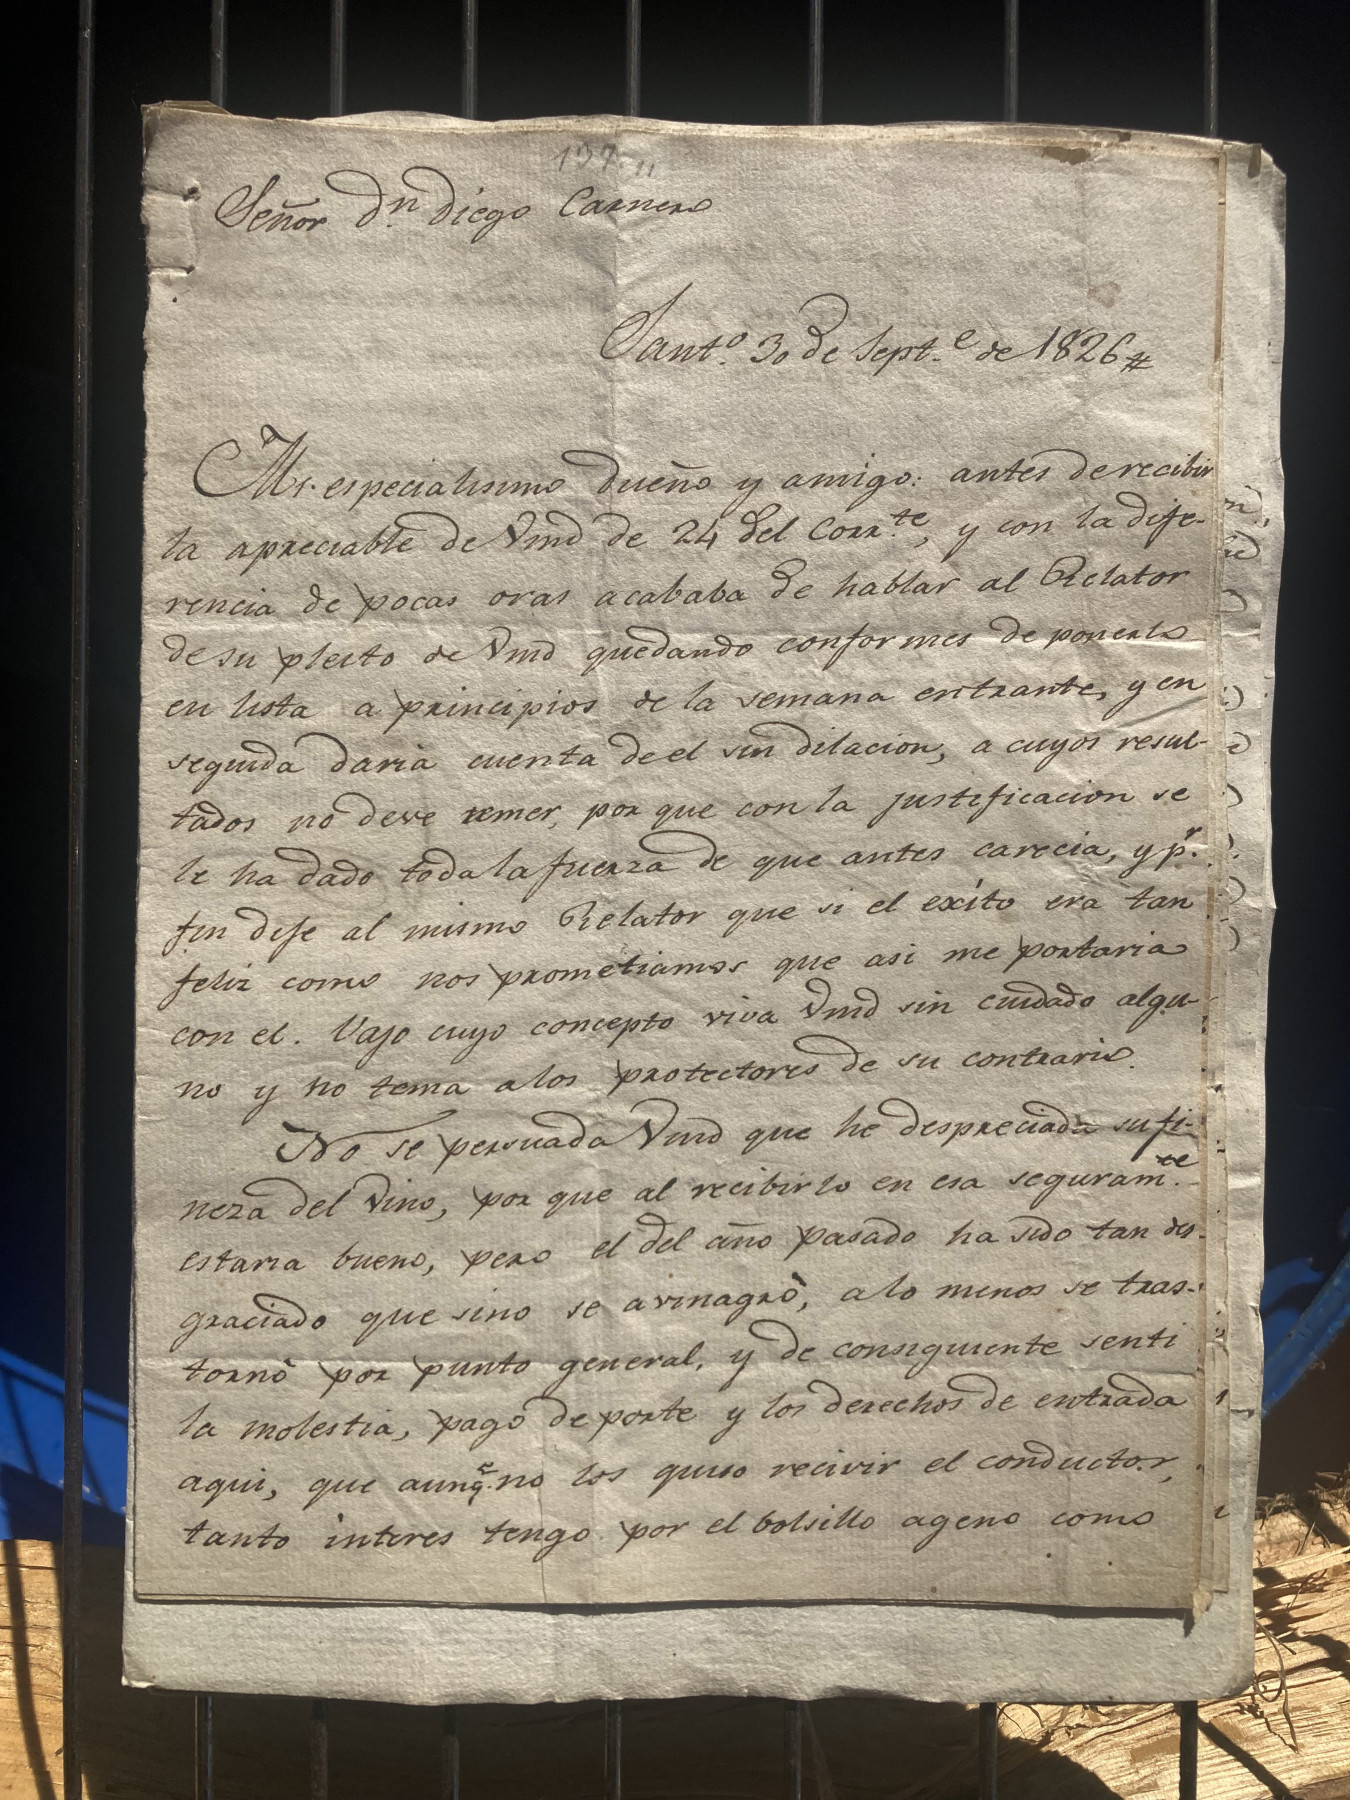 137.
Señor Dn. Diego Carnero
Santo. 30 de Septe. de 1826
Mi especialisimo dueño y amigo: antes de recibir
la apreciable de Vmd de 24 del Corrte, y con la dife-
rencia de pocas oras acababa de hablar al Relator
de su pleito de Vmd quedando conformes de ponerlo
en lista a principios de la semana entrante, y en
seguida daria cuenta de el sin dilacion, a cuyos resul-
tados no deve temer, por que con la justificacion se
le ha dado toda la fuerza de que antes carecia, y pr.
fin dije al mismo Relator que si el exíto era tan
feliz como nos prometiamos que asi me portaria
con el. Vajo cuyo concepto viva Vmd sin cuidado algu-
no y no tema a los protectores de su contrario.
No se persuada Vmd que he despreciado su fi-
neza del vino, por que al recibirlo en esa seguramte.
estaria bueno, pero el del año pasado ha sido tan des-
graciado que sino se avinagrò, a lo menos se tras-
tornò por punto general, y de consiguiente senti
la molestia, pago de porte y los derechos de entrada
aqui, que aunqe. no los quiso recivir el conductor,
tanto interes tengo por el bolsillo ageno como